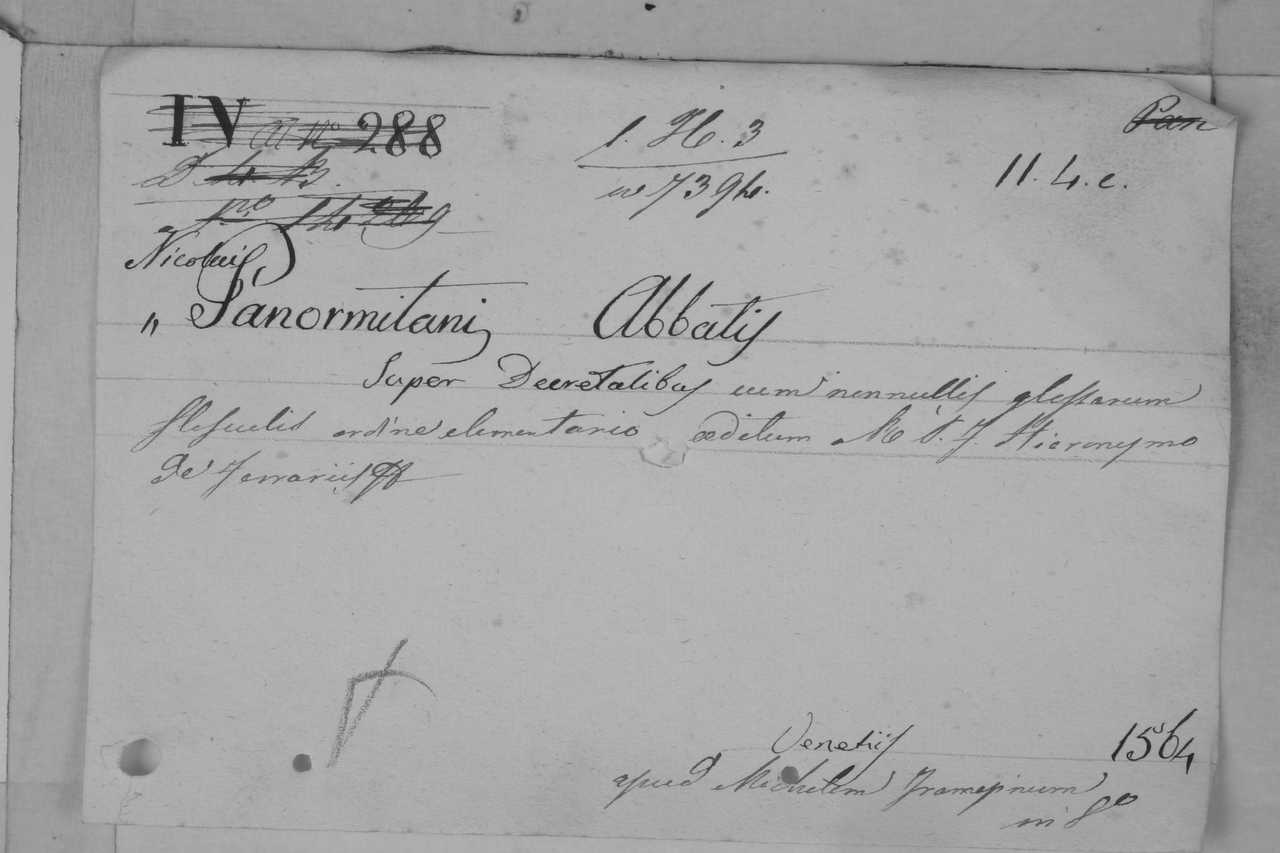 IV 288
1. H. 3
Pan
11. 4. c.
Nicolai
„ Panormitani Abbatis
Super Decretalibus cum nonnullis glossarum
flosculis ordine elementario æditum Hieronymo
de Ferrariis
Venetiis 1564
apud Michelem Tramezinum
in 8°